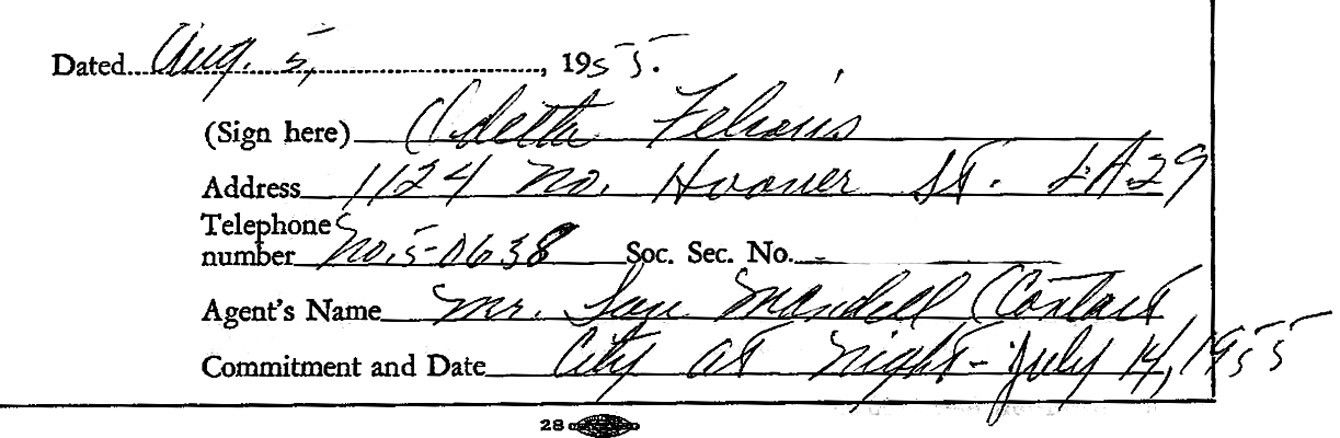 Dated Aug. 5, 1955.
(Sign here) Odetta Felious
Address 1124 No. Hoover St. LA 29
Telephone
number No. 5-0638 Soc. Sec. No. -
Agent's Name Mr. Mandell (Contact
Commitment and Date City at Night - July 14, 1955
28